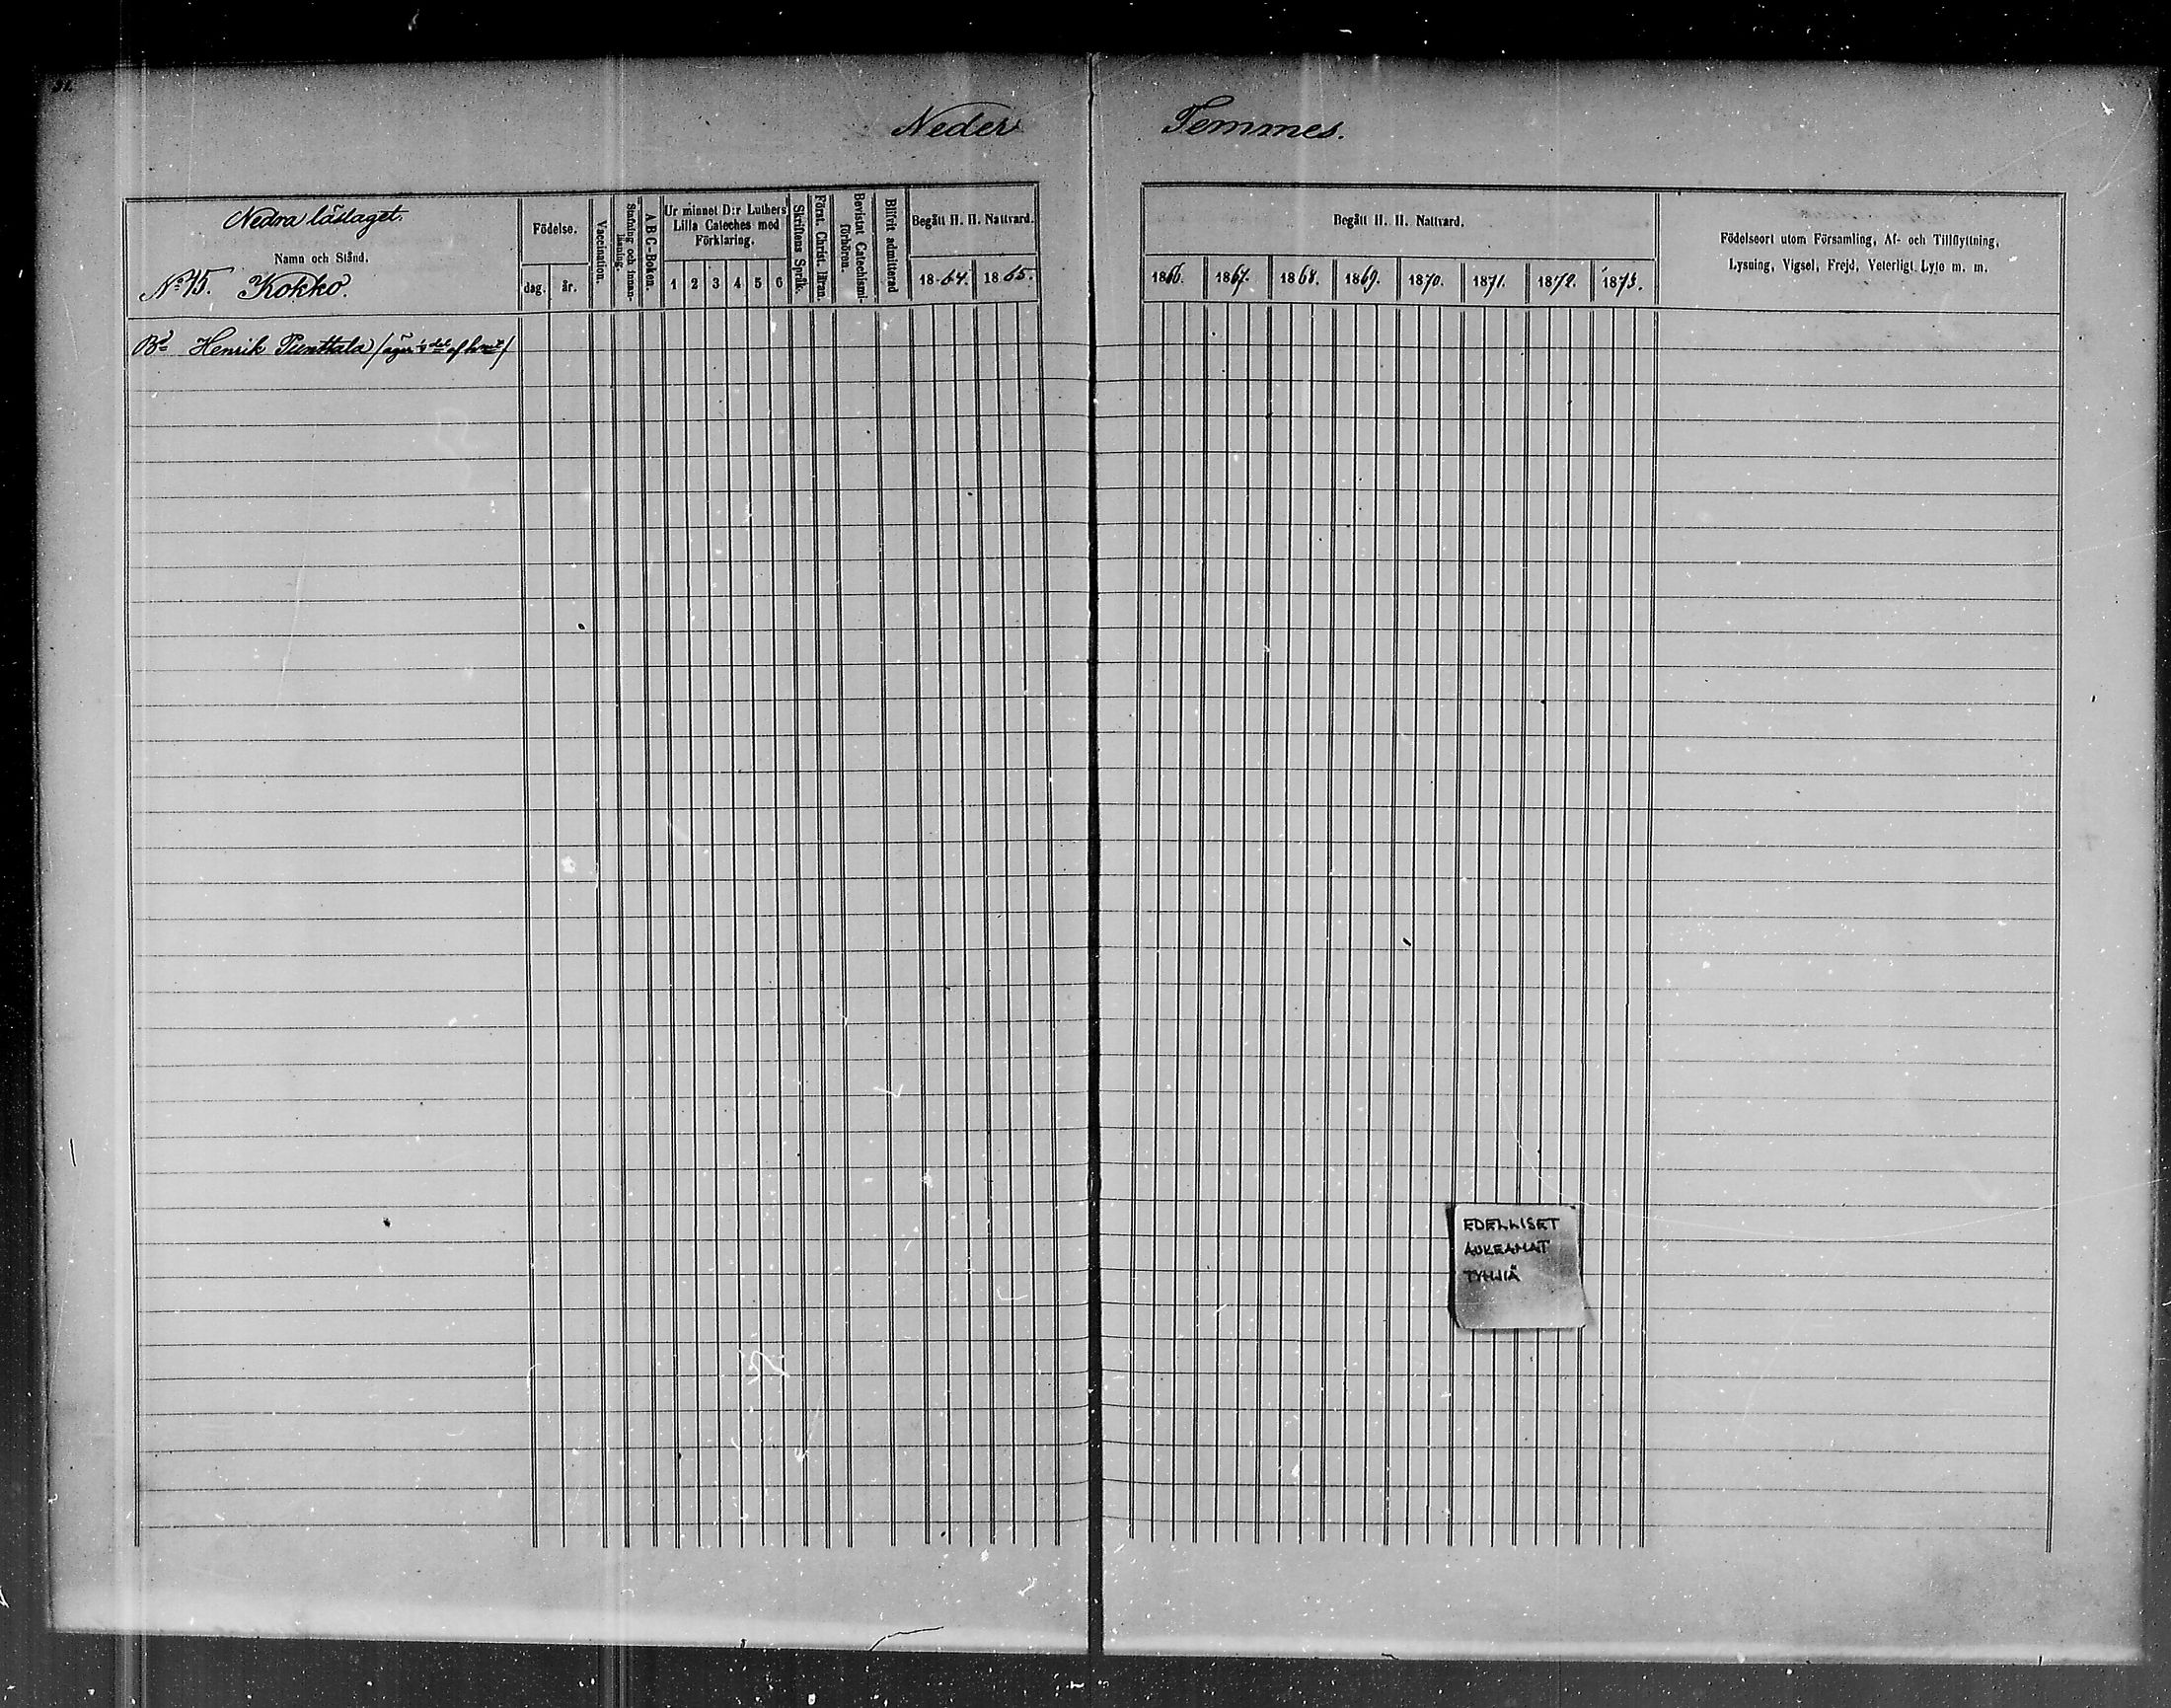 51.
Neder Temmes.
Nedra läslaget.
Namn och Stånd.
No 45. Kokko.
Födelse.
dag. år.
Vaccination.
Stafning och innan-läsning.
A B C-Boken.
Ur minnet D:r Luthers
Lilla Cateches med
Förklaring.
1 2 3 4 5 6
Skriftens Språk.
Först. Christ. läran.
Bevistat Catechismi-förhören.
Blifvit admitterad
Begått H. H. Nattvard.
1864. 1865.
Begått H. H. Nattvard.
1866. 1867. 1868. 1869. 1870. 1871. 1872. 1873.
Födelseort utom Församling, Af- och Tillflyttning,
Lysning, Vigsel, Frejd, Veterligt Lyte m. m.
Bd Henrik Punttala
EDELLISET
AUKEAMAT
TYHJIÄ